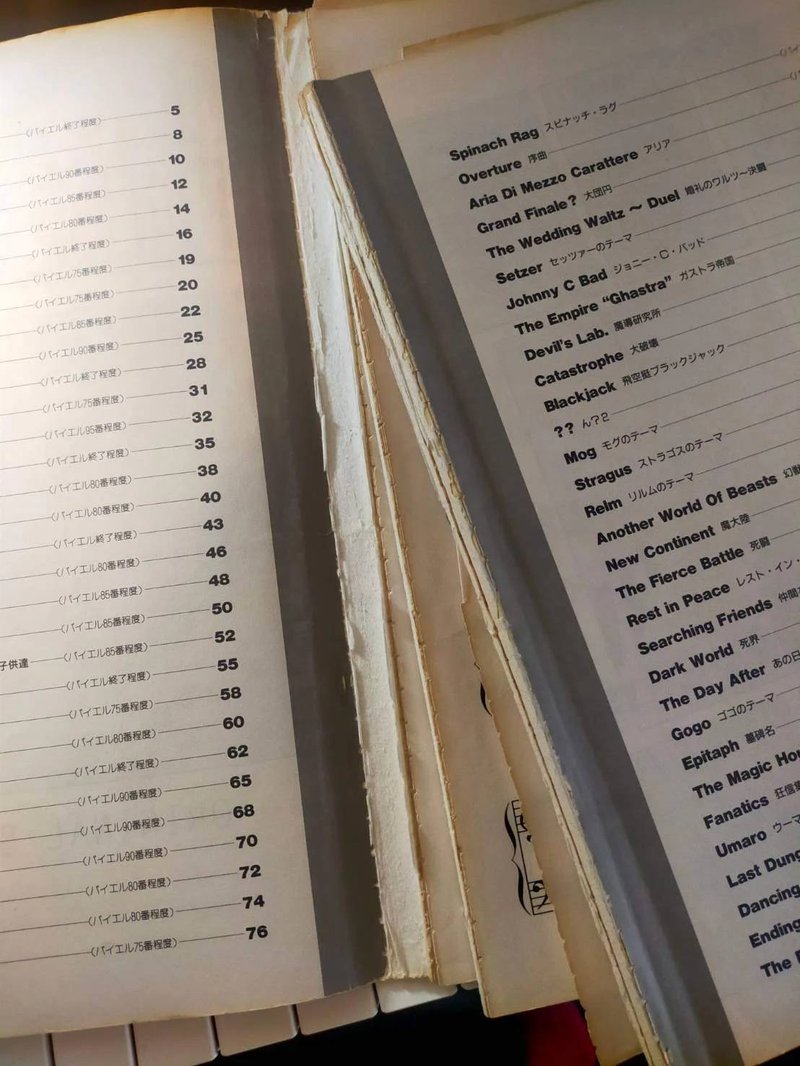 (バイエル終了程度) 5
8
(バイエル90番程度) 10
(バイエル85番程度) 12
(バイエル80番程度) 14
(バイエル終了程度) 16
(バイエル75番程度) 19
(バイエル75番程度) 20
(バイエル85番程度) 22
(バイエル90番程度) 25
(バイエル終了程度) 28
(バイエル75番程度) 31
(バイエル95番程度) 32
(バイエル終了程度) 35
(バイエル80番程度) 38
(バイエル80番程度) 40
(バイエル終了程度) 43
(バイエル80番程度) 46
(バイエル85番程度) 48
(バイエル85番程度) 50
子供達 (バイエル85番程度) 52
(バイエル終了程度) 55
(バイエル75番程度) 58
(バイエル80番程度) 60
(バイエル終了程度) 62
(バイエル90番程度) 65
(バイエル90番程度) 68
(バイエル90番程度) 70
(バイエル80番程度) 72
(バイエル80番程度) 74
(バイエル75番程度) 76
Spinach Rag スピナッチ・ラグ
Overture 序曲
Aria Di Mezzo Carattere アリア
Grand Finale? 大団円
The Wedding Waltz ~ Duel 婚礼のワルツ~決闘
Setzer セッツァーのテーマ
Johnny C Bad ジョニー・C・バッド
The Empire "Ghastra" ガストラ帝国
Devil's Lab. 魔導研究所
Catastrophe 大破壊
Blackjack 飛空艇ブラックジャック
?? ん?2
Mog モグのテーマ
Stragus ストラゴスのテーマ
Relm リルムのテーマ
Another World Of Beasts 幻獣
New Continent 魔大陸
The Fierce Battle 死闘
Rest in Peace レスト・イン・
Searching Friends 仲間
Dark World 死界
The Day After あの日
Gogo ゴゴのテーマ
Epitaph 墓碑名
The Magic
Fanatics 狂信
Umaro ウーマ
Last
Dancing
Ending
The